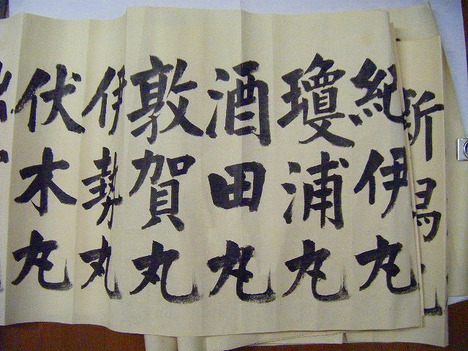 新潟丸
紀伊丸
瓊浦丸
酒田丸
敦賀丸
伊勢丸
伏木丸